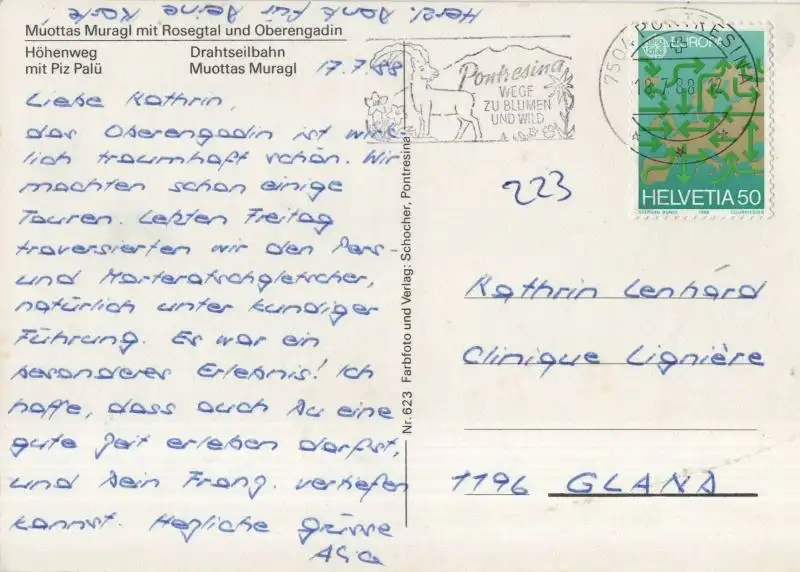 Herzl. Dank für Deine Karte
Muottas Muragl mit Rosegtal und Oberengadin
Höhenweg Drahtseilbahn
mit Piz Palü Muottas Muragl
17.7.88
Liebe Kathrin,
das Oberengadin ist wirk-
lich traumhaft schön. Wir
machten schon einige
Touren. Letzten Freitag
traversierten wir den Pers-
und Morteratschgletscher,
natürlich unter kundiger
Führung. Es war ein
besonderes Erlebnis! Ich
hoffe, dass auch Du eine
gute Zeit erleben darfst,
und Dein Franz. vertiefen
kannst. Herzliche Grüsse
Nr. 623 Farbfoto und Verlag: Schocher, Pontresina
Pontresina
WEGE
ZU BLUMEN
UND WILD
7504 PONTRESINA
18.7.88-12
EUROPA
HELVETIA 50
1988 COURVOISIER
223
Kathrin Lenhard
Clinique Lignière
1196 GLAND